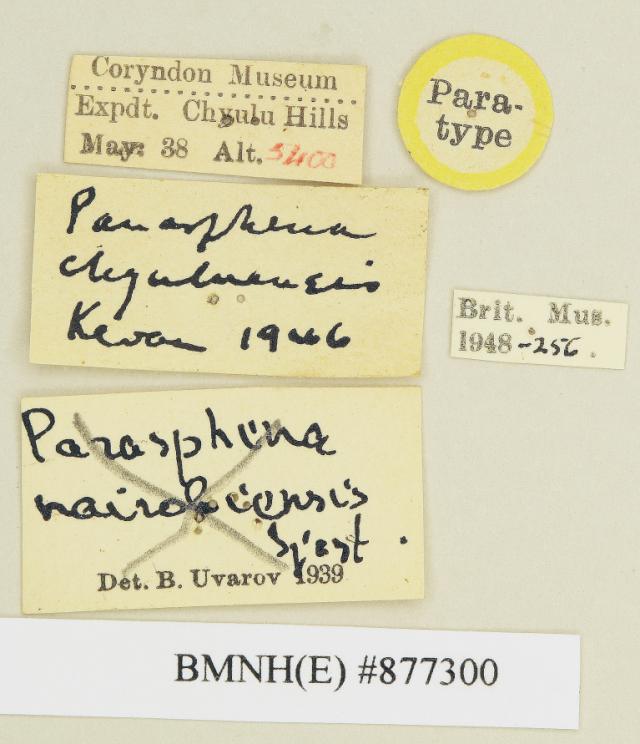 Coryndon Museum
Expdt. Chyulu Hills
May: 38 Alt. 5400
Para-
type
Parasphena
chyuluensis
Kevan 1946
Brit. Mus.
1948-256.
Parasphena
nairobiensis
Sjöst.
Det. B. Uvarov 1939
BMNH(E) #877300